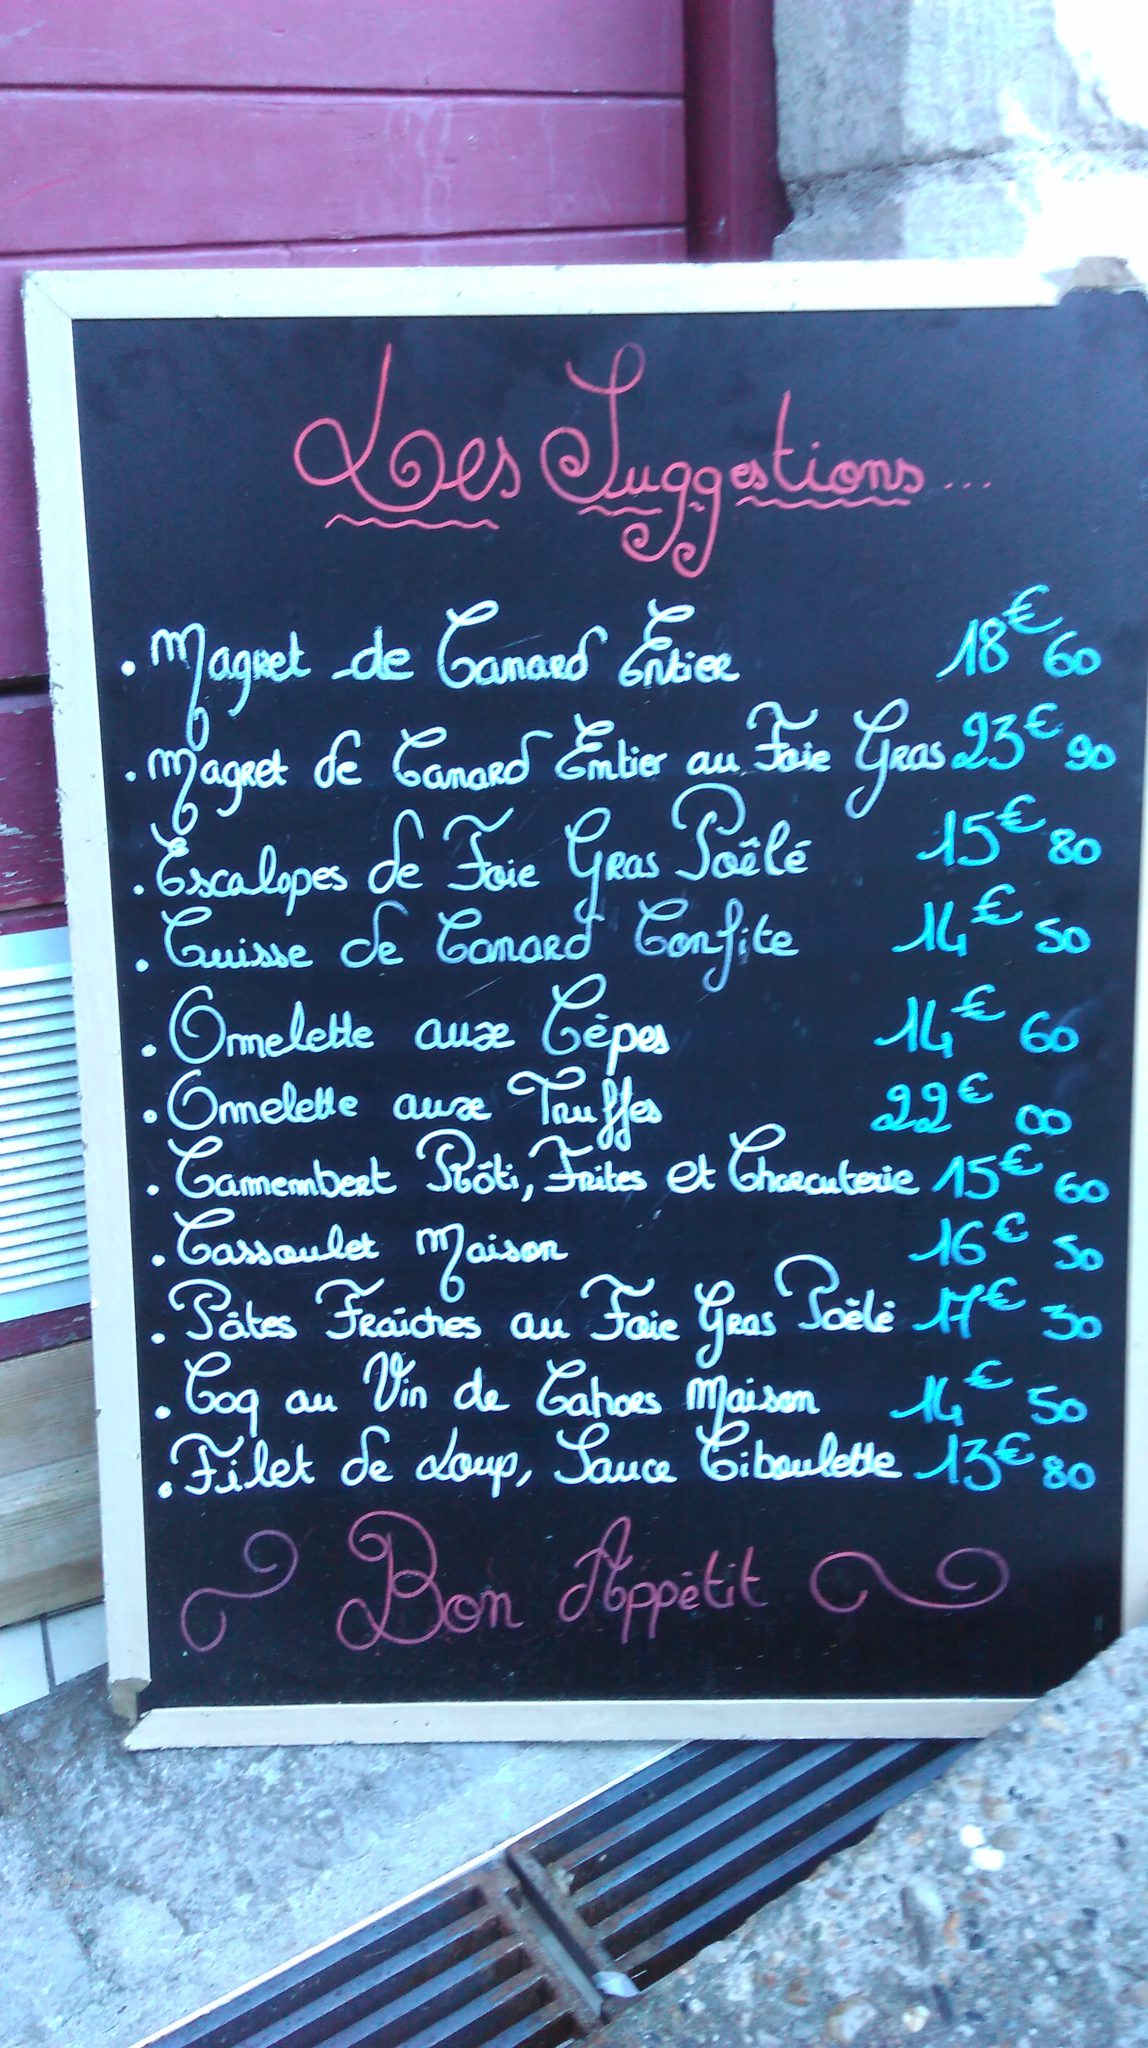 Les Suggestions...
. Magret de Canard Entier 18€60
. Magret de Canard Entier au Foie Gras 23€90
. Escalopes de Foie Gras Poêlé 15€80
. Cuisse de Canard Confite 14€50
. Omelette aux Cèpes 14€60
. Omelette aux Truffes 22€00
. Camembert Rôti, Frites et Charcuterie 15€60
. Cassoulet Maison 16€50
. Pâtes Fraîches au Foie Gras Poêlé 17€30
. Coq au Vin de Cahors Maison 14€50
. Filet de Loup, Sauce Ciboulette 13€80
Bon Appétit